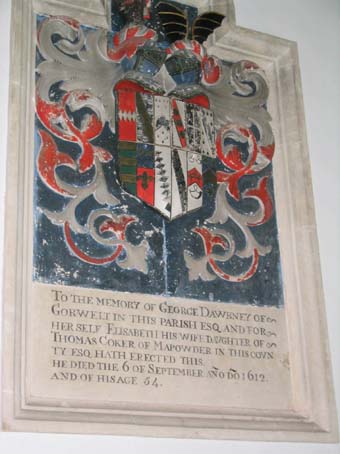 TO THE MEMORY OF GEORGE DAWBNEY OF
GORWELL IN THIS PARISH ESQ AND FOR
HER SELF ELISABETH HIS WIFE DAUGHTER OF
THOMAS COKER OF MAPOWDER IN THIS COVN
TY ESQ HATH ERECTED THIS.
HE DIED THE 6 OF SEPTEMBER AÑO DÑO 1612.
AND OF HIS AGE 54.